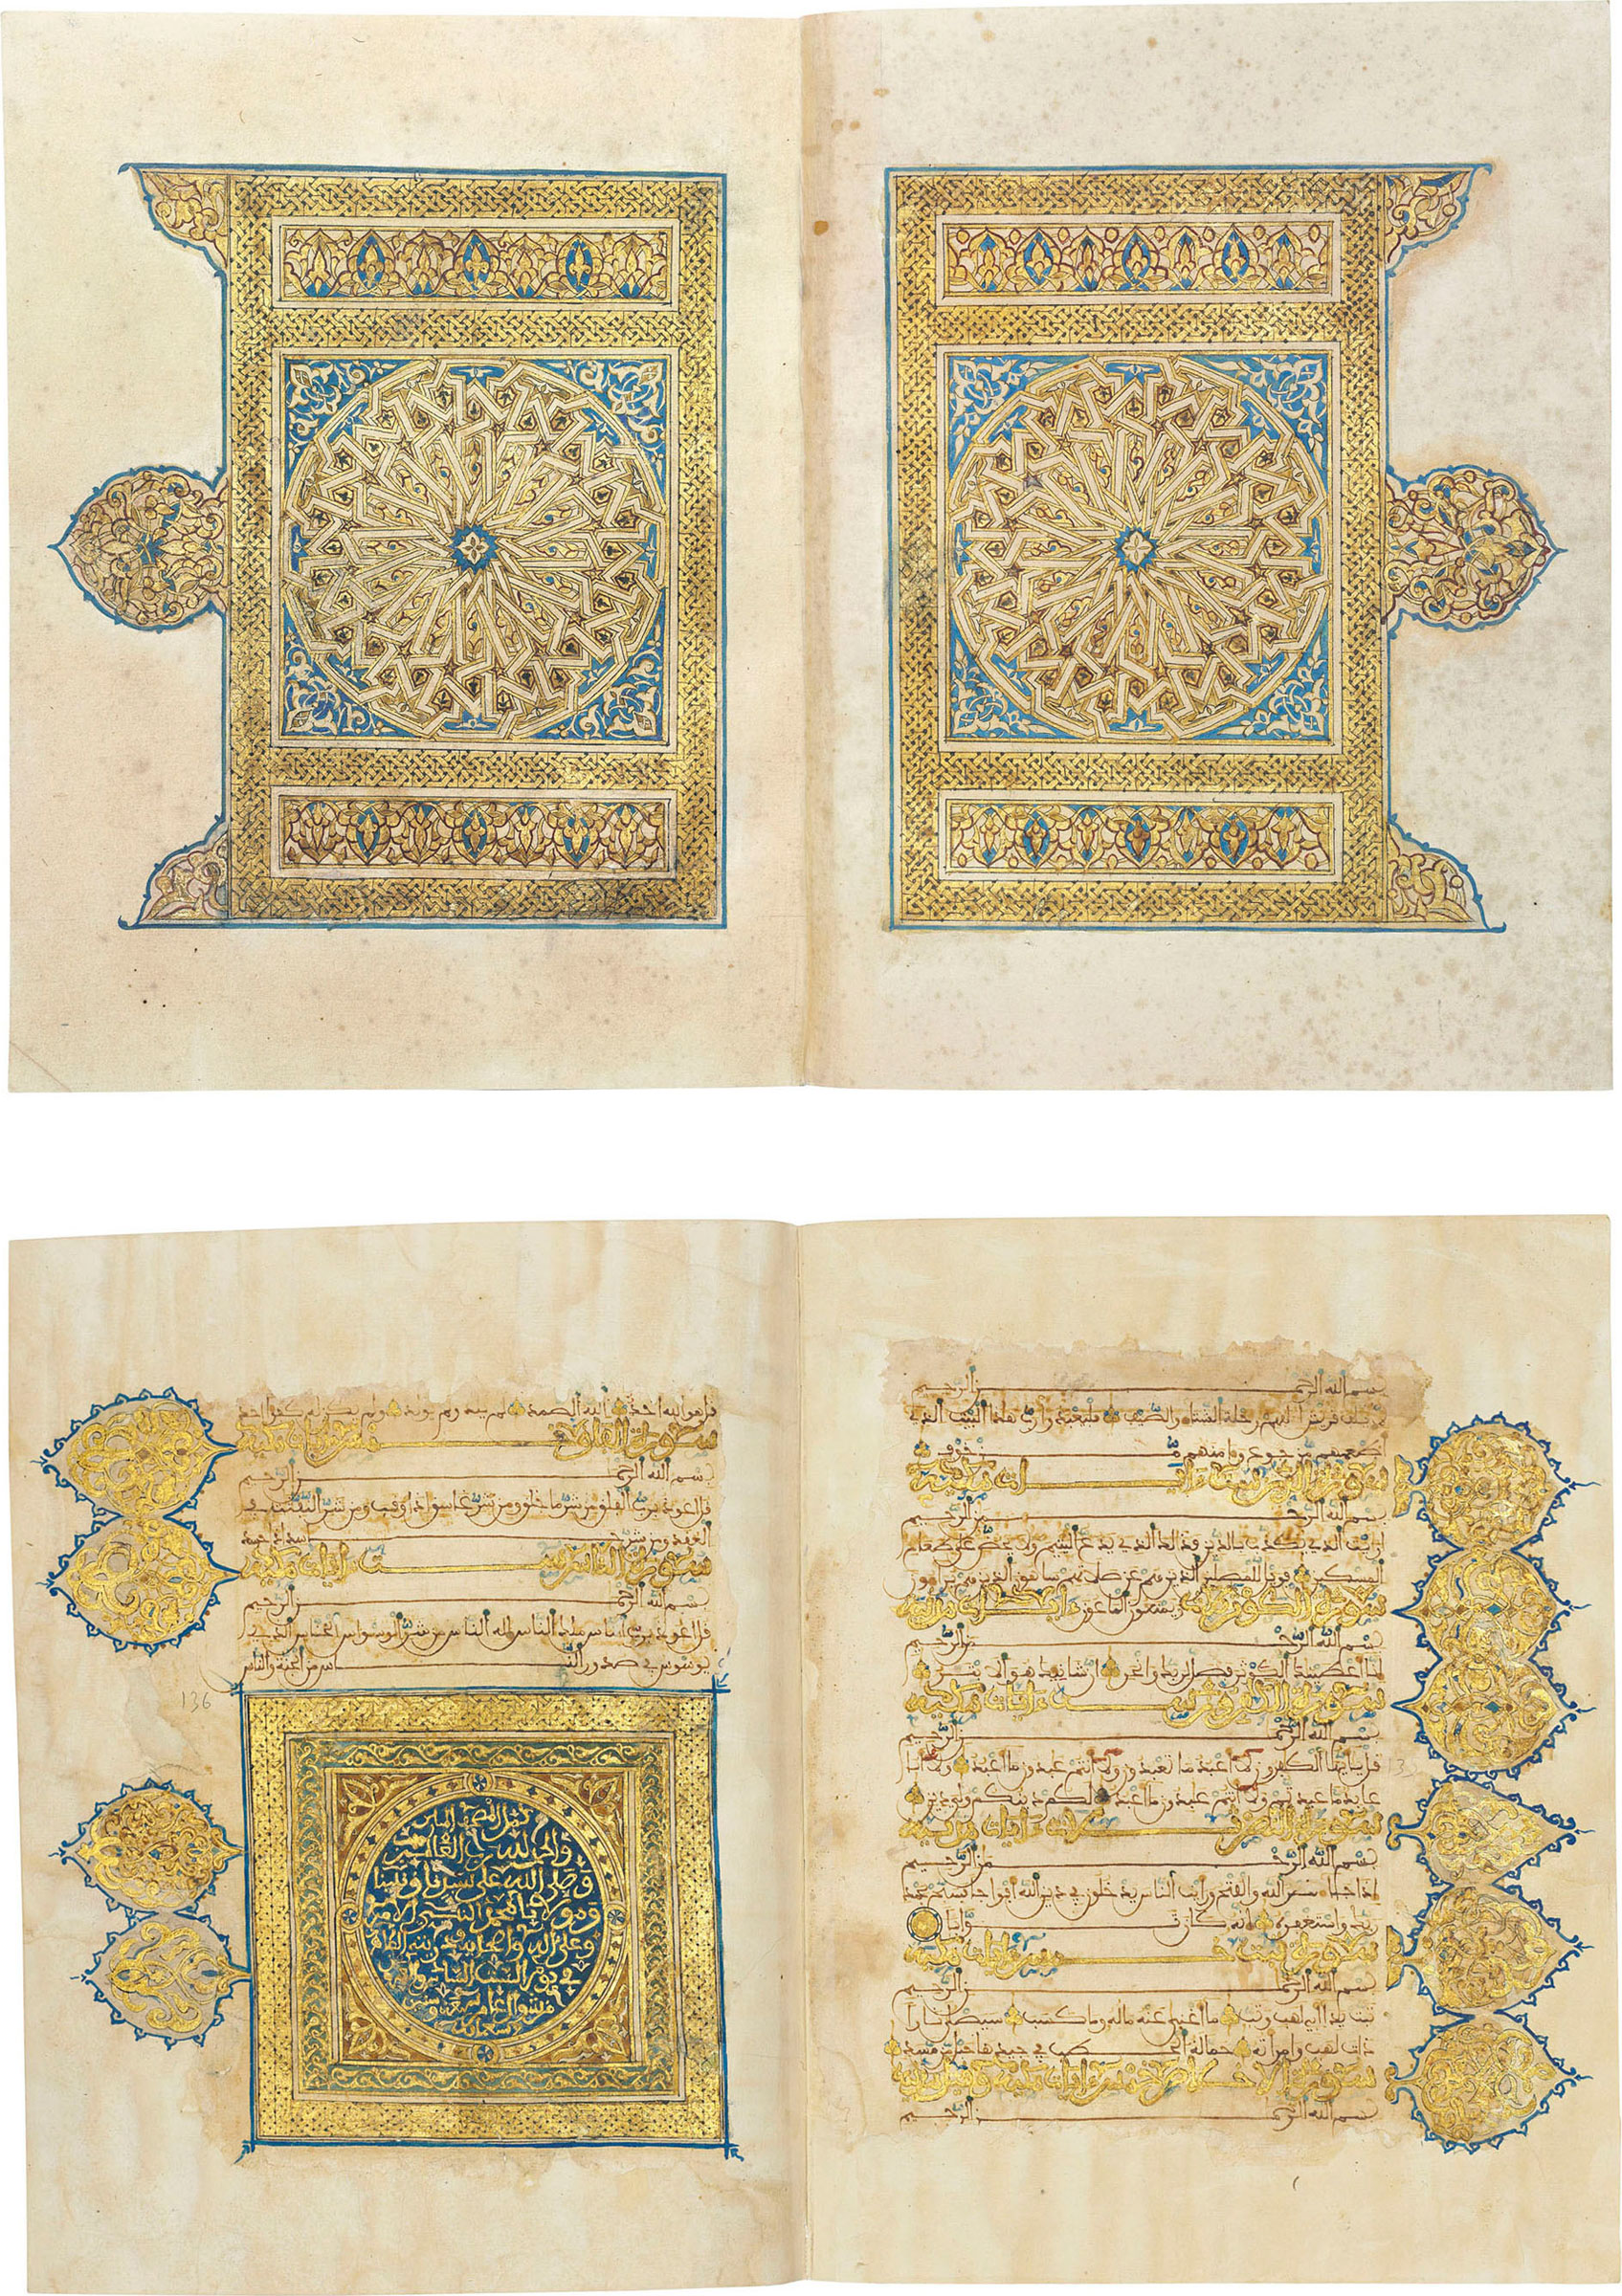 بسم الله الرحمن الرحيم
لإيلف قريش إلفهم رحلة الشتاء والصيف فليعبدوا رب هذا البيت الذي
أطعمهم من جوع وءامنهم من خوف
سورة ءايات مكية
بسم الله الرحمن الرحيم
أرءيت الذي يكذب بالدين فذلك الذي يدع اليتيم ولا يحض على طعام
المسكين فويل للمصلين الذين هم عن صلاتهم ساهون الذين هم يراءون
ويمنعون الماعون سورة الكوثر ثلاث ءايات مكية
بسم الله الرحمن الرحيم
إنا أعطينك الكوثر فصل لربك وانحر إن شانئك هو الأبتر
سورة الكافرون ست ءايات مكية
بسم الله الرحمن الرحيم
قل يأيها الكفرون لا أعبد ما تعبدون ولا أنتم عبدون ما أعبد ولا أنا
عابد ما عبدتم ولا أنتم عبدون ما أعبد لكم دينكم ولي دين
سورة النصر ثلاث ءايات
بسم الله الرحمن الرحيم
إذا جاء نصر الله والفتح ورأيت الناس يدخلون في دين الله أفواجا فسبح بحمد
ربك واستغفره إنه كان توابا
سورة تبت خمس ءايات مكية
بسم الله الرحمن الرحيم
تبت يدا أبي لهب وتب ما أغنى عنه ماله وما كسب سيصلى نارا
ذات لهب وامرأته حمالة الحطب في جيدها حبل من مسد
سورة الإخلاص ءايات مكية
بسم الله الرحمن الرحيم
قل هو الله أحد الله الصمد لم يلد ولم يولد ولم يكن له كفؤا أحد
سورة الفلق خمس ءايات مكية
بسم الله الرحمن الرحيم
قل أعوذ برب الفلق من شر ما خلق ومن شر غاسق إذا وقب ومن شر النفثت في
العقد ومن شر حاسد إذا حسد
سورة الناس ست ءايات مكية
بسم الله الرحمن الرحيم
قل أعوذ برب الناس ملك الناس إله الناس من شر الوسواس الخناس الذي
يوسوس في صدور الناس من الجنة والناس
136
كمل المصحف
والحمد لله رب العالمين
وصلى الله على سيدنا ونبينا
ومولانا محمد النبي الأمي
وعلى آله وأصحابه
في يوم السبت
من شوال عام